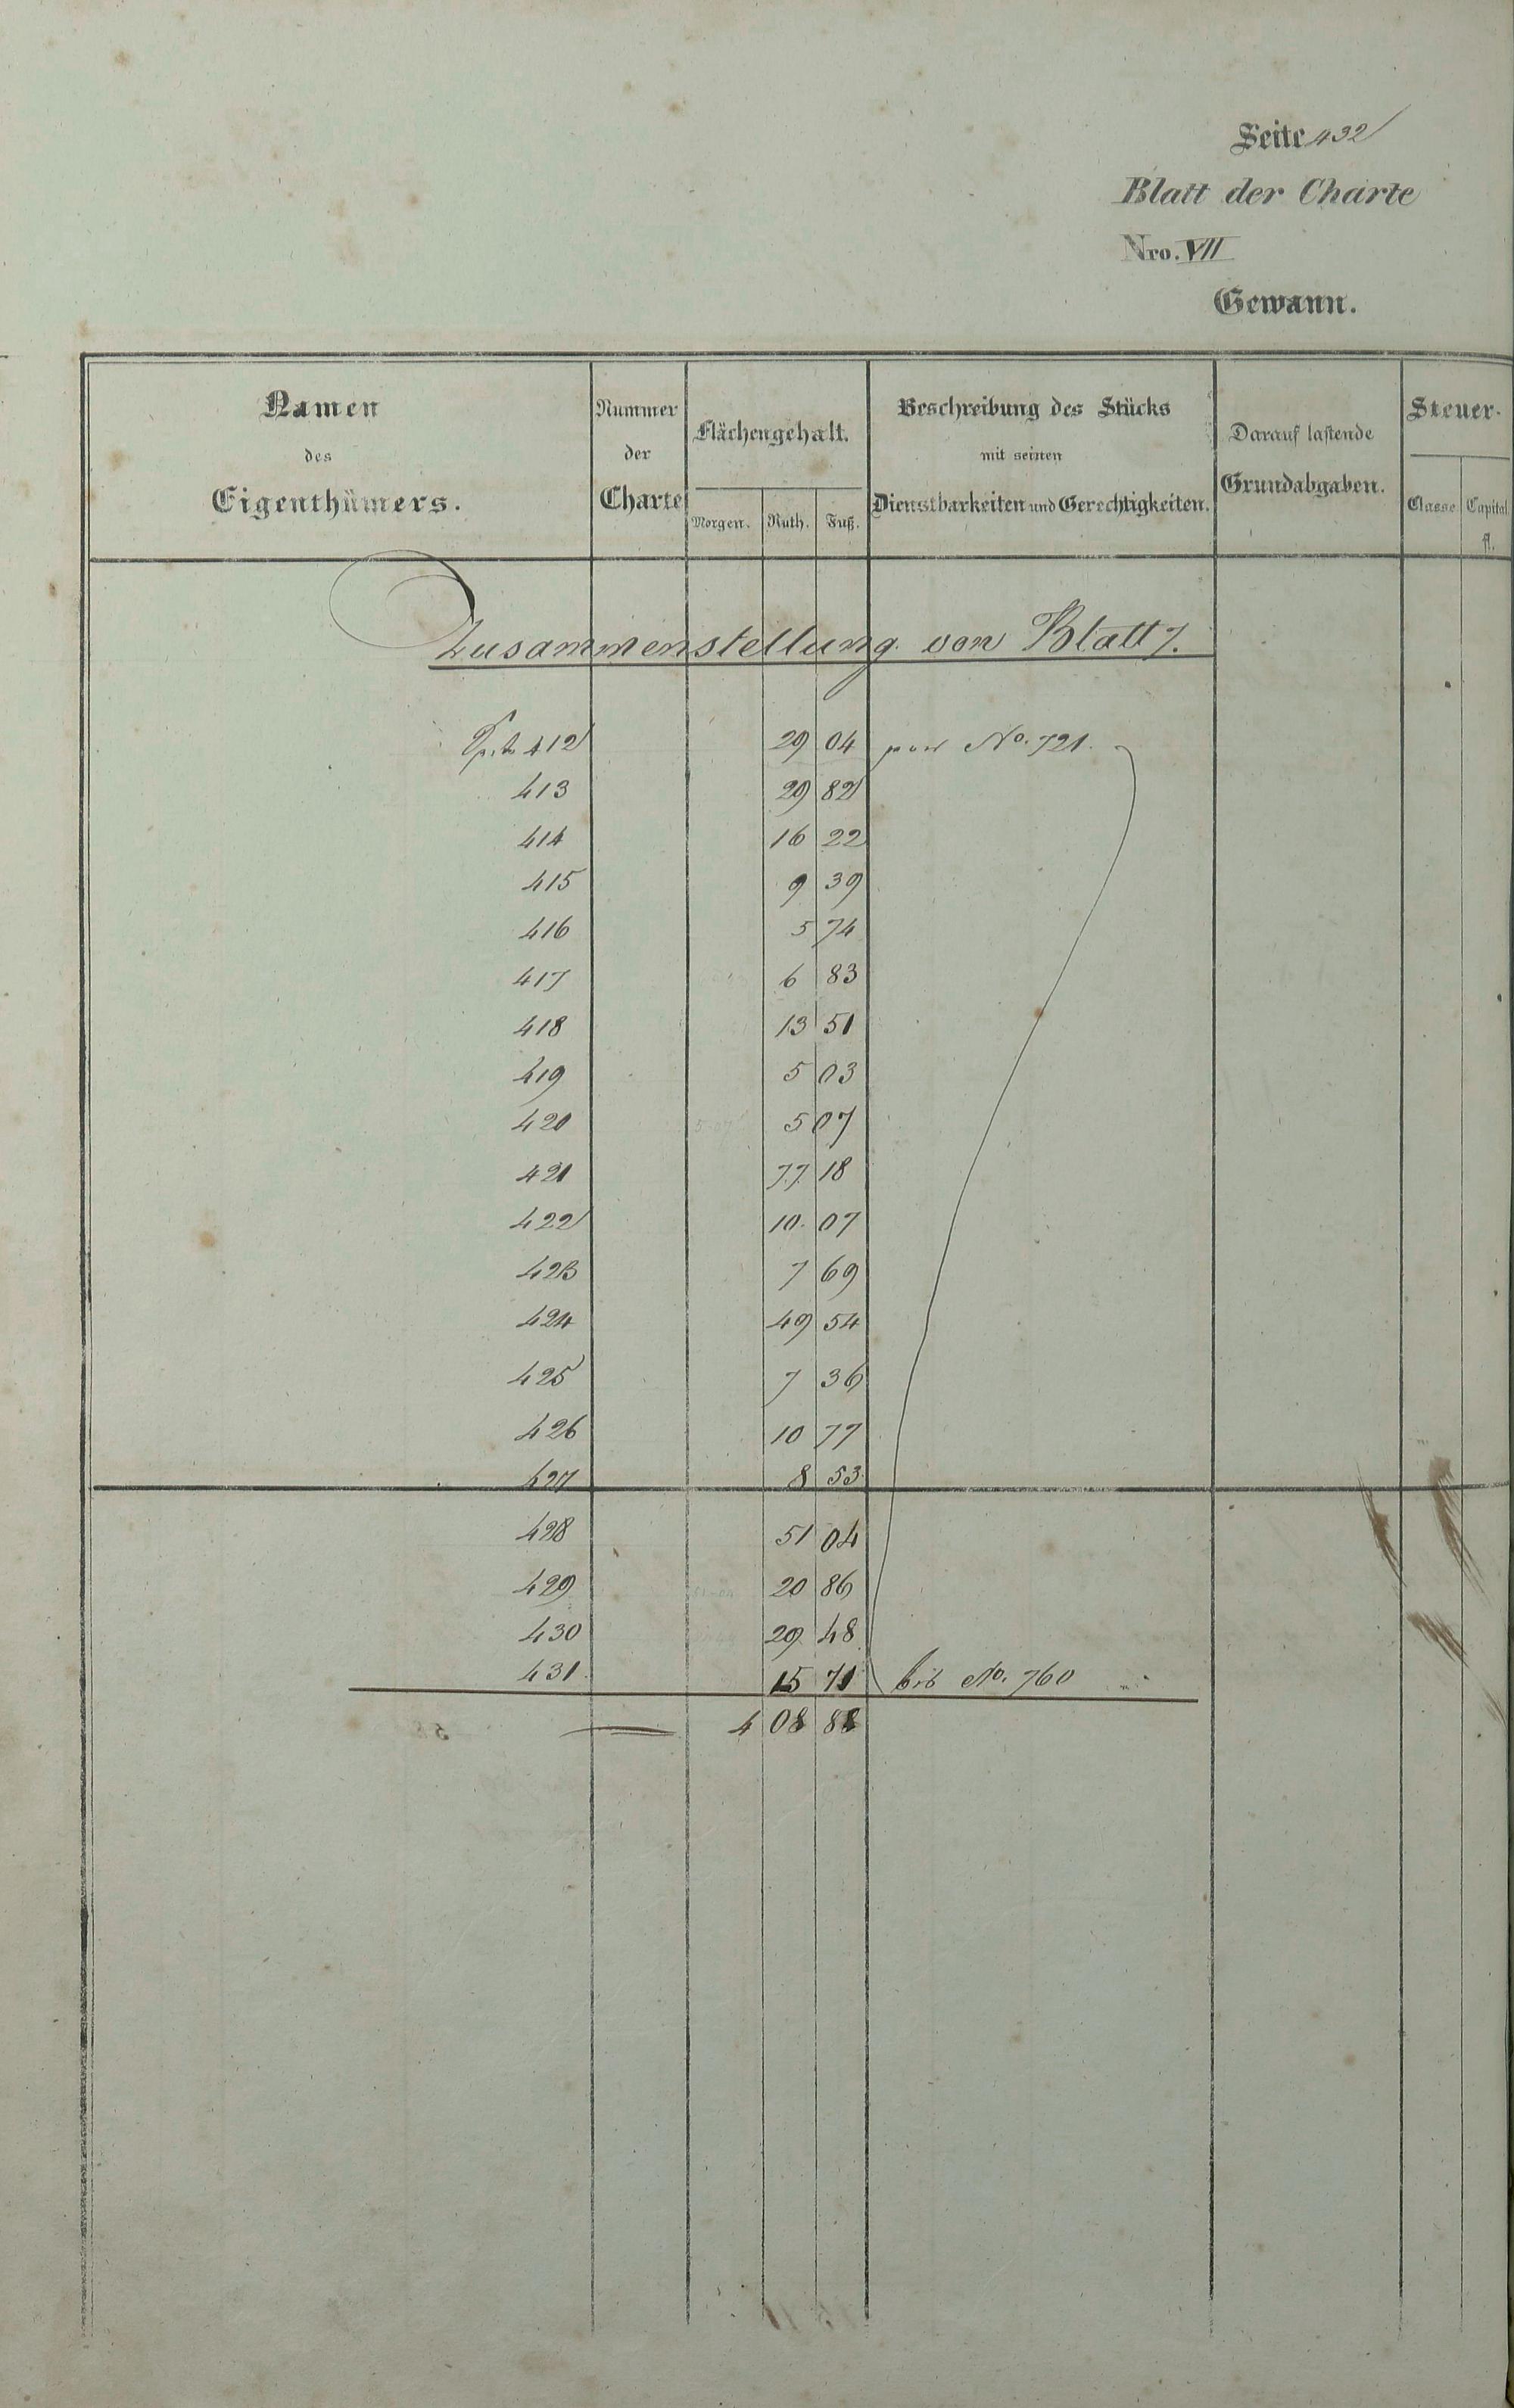 Seite 432
Blatt der Charte
Nro. VII
Gewann.
Namen des Eigenthümers.
Nummer der Charte
Flächengehalt.
Morgen. Ruth. Fuß.
Beschreibung des Stücks mit seinen Dienstbarkeiten und Gerechtigkeiten.
Darauf lastende Grundabgaben.
Steuer-
Classe Capital fl.
Zusammenstellung von Blatt 7.
412 29 04 No. 721.
413 29 82
414 16 22
415 9 39
416 5 74
417 6 83
418 13 51
419 5 03
420 5 07
421 77 18
422 10. 07
423 7 69
424 49 54
425 7 36
426 10 77
427 8 53
428 51 04
429 20 86
430 29 48
431. 15 71 bis No. 760
4 08 88